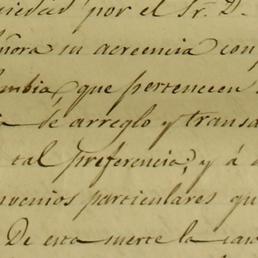 ciedad por el Sr. D.
ñora su acreencia con
mbia, que pertenecen
a de arreglo y transa
tal preferencia, y á
nvenios particulares qu
De esta suerte la can